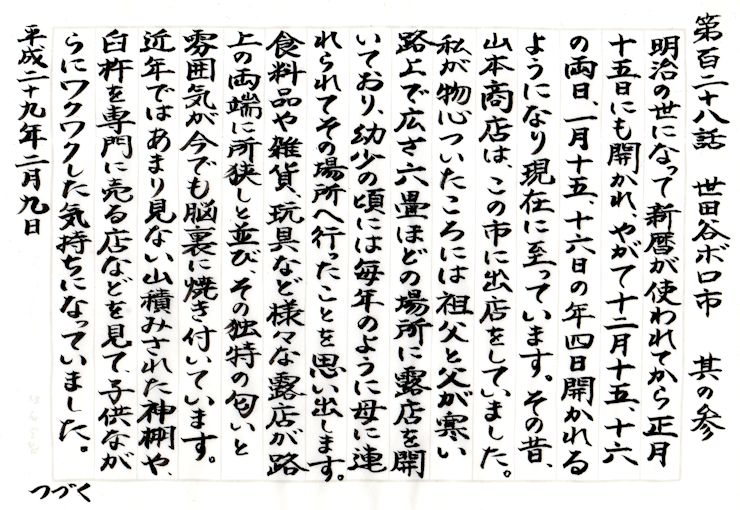 第百二十八話　世田谷ボロ市　其の参
明治の世になって新暦が使われてから正月
十五日にも開かれ、やがて十二月十五、十六
の両日、一月十五、十六日の年四日開かれる
ようになり現在に至っています。その昔、
山本商店は、この市に出店をしていました。
私が物心ついたころには祖父と父が寒い
路上で広さ六畳ほどの場所に露店を開
いており、幼少の頃には毎年のように母に連
れられてその場所へ行ったことを思い出します。
食料品や雑貨、玩具など様々な露店が路
上の両端に所狭しと並び、その独特の匂いと
雰囲気が今でも脳裏に焼き付いています。
近年ではあまり見ない山積みされた神棚や、
臼杵を専門に売る店などを見て、子供なが
らにワクワクした気持ちになっていました。
平成二十九年二月九日
つづく